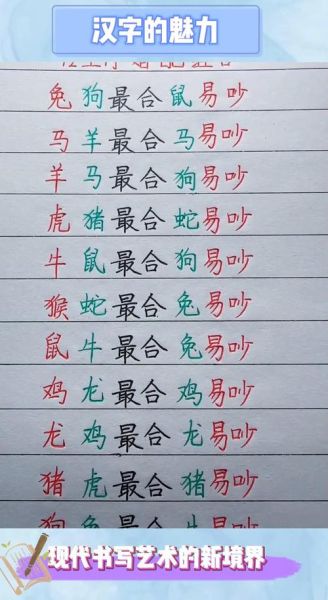 汉字的魅力
兔狗最合鼠易吵
马羊最合马易吵
羊马最合狗易吵
虎猪最合蛇易吵
牛鼠最合狗易吵
猴蛇最合兔易吵
鼠牛最合兔易吵
鸡龙最合鸡易吵
龙鸡最合龙易吵
猪虎最合猪易吵
现代书写艺术的新境界